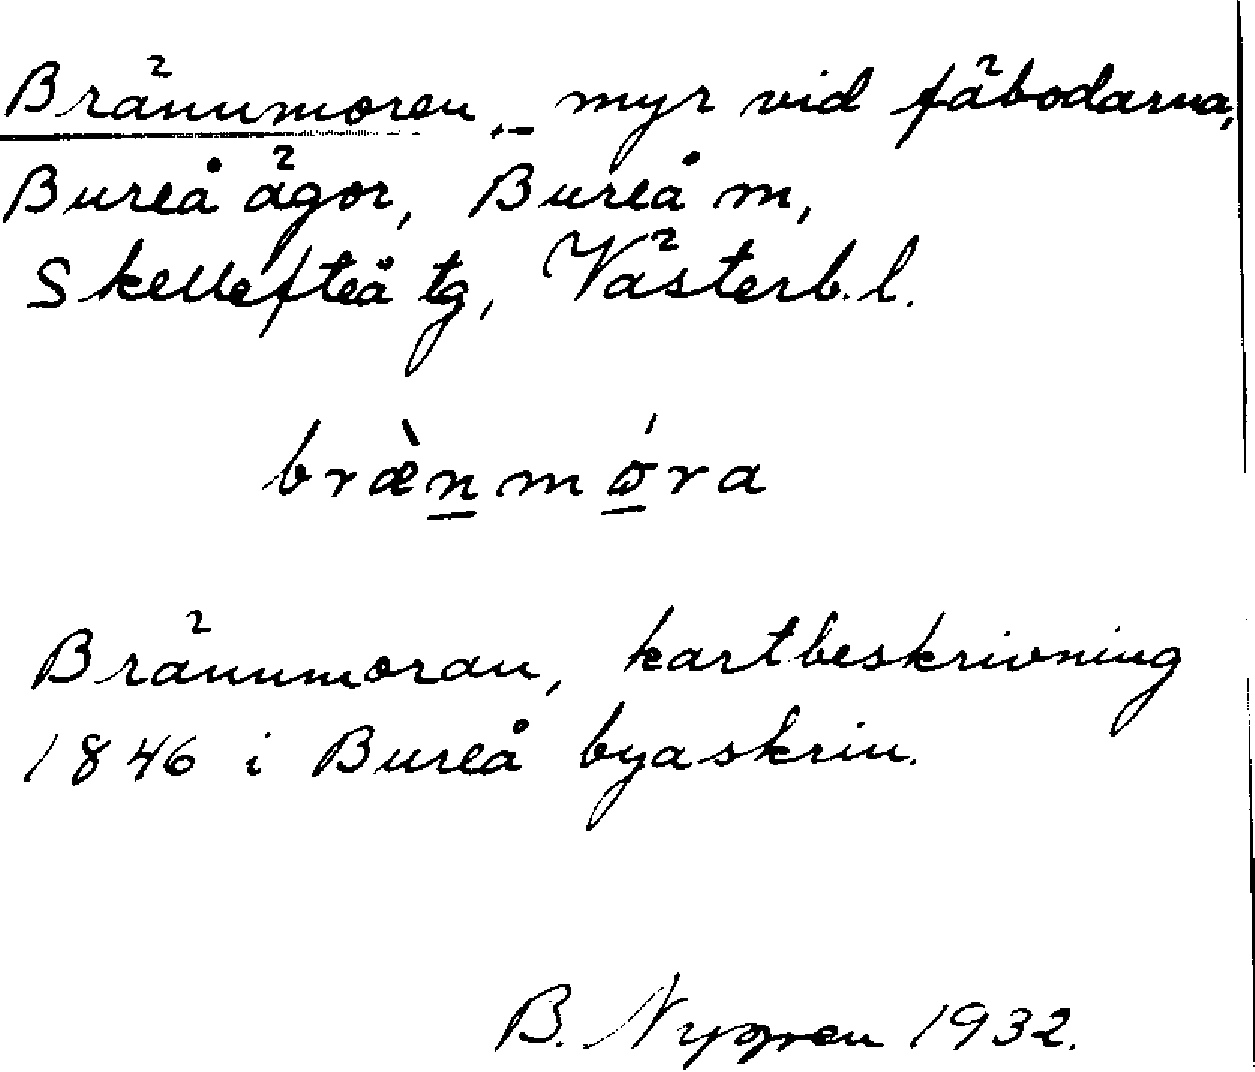 Brännmoren, myr vid fäbodarna,
Bureå ägor, Bureå m,
Skellefteå tg, Västerb.l.
bræ̀n̲mó̲ra
Brännmoran, kartbeskrivning
1846 i Bureå byaskrin.
B. Nygren 1932.